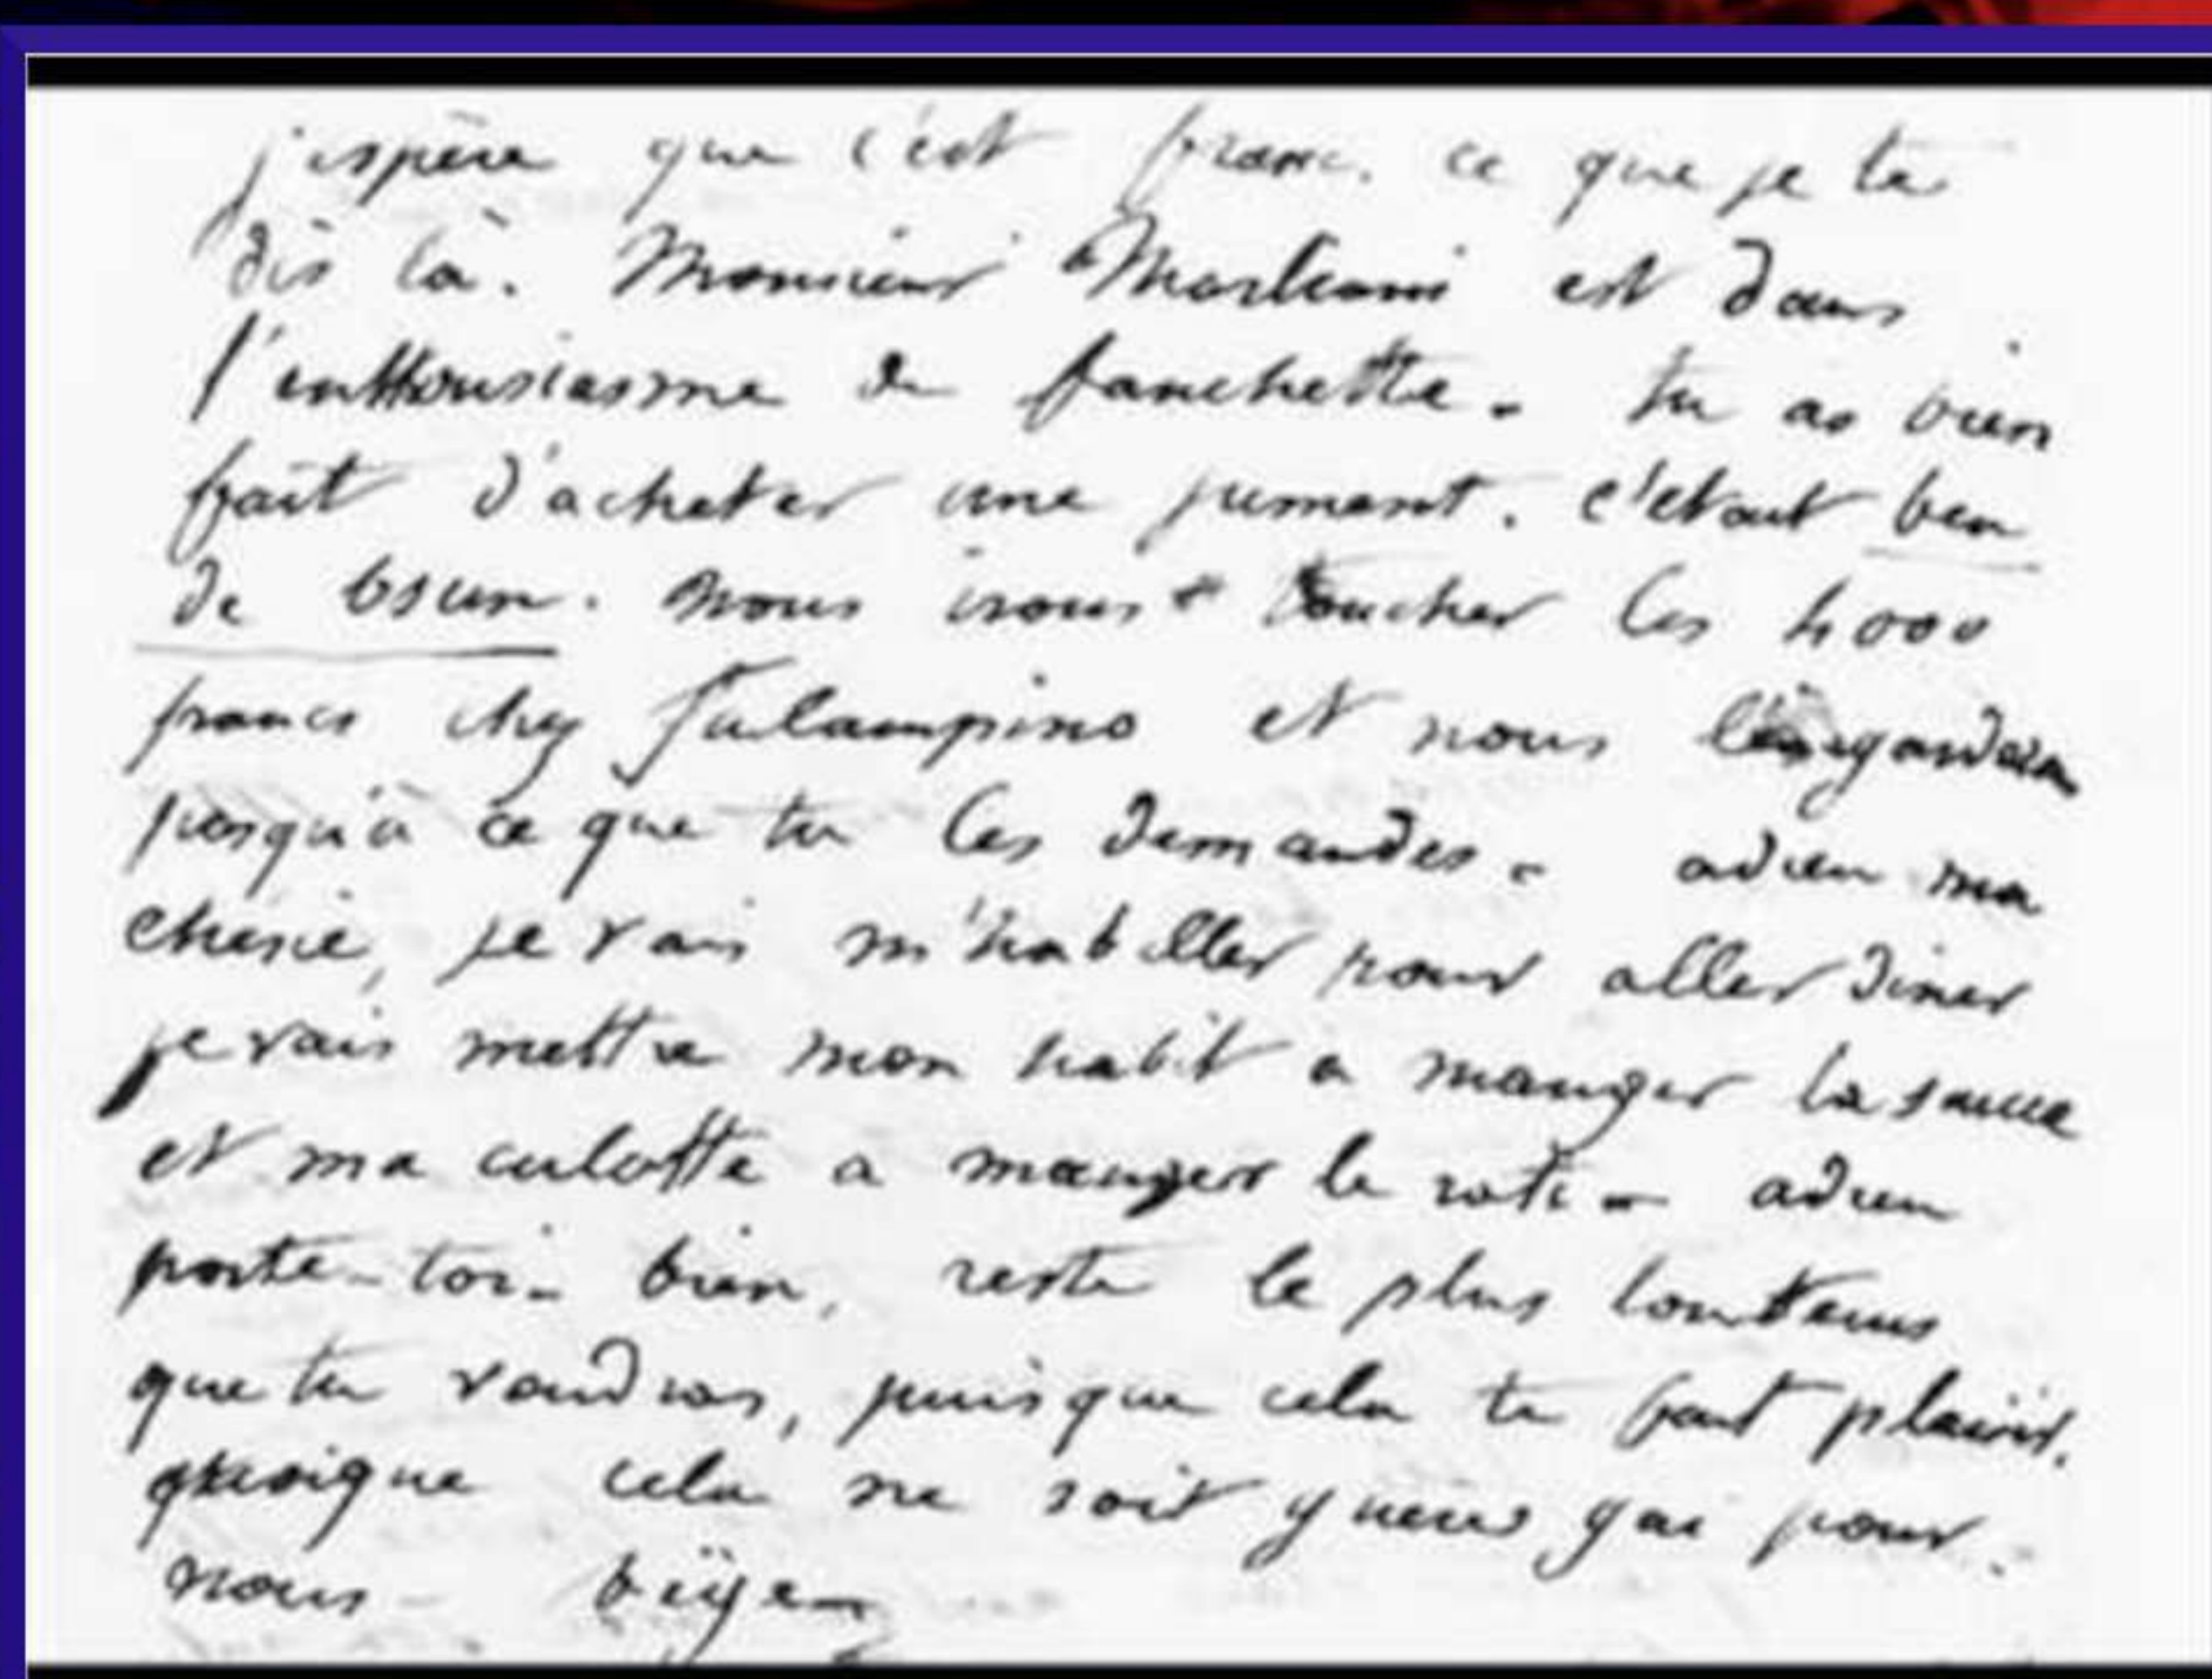 j'espère que c'est franc. ce que je te
dis là. Monsieur Marliani est dans
l'enthousiasme de fanchette. tu as bien
fait d'acheter une jument. c'etait ben
de bsun. nous irons toucher les 4000
francs chez Fulampino et nous les gardera
jusqu'à ce que tu les demandes. adieu ma
cherie, je vais m'habiller pour aller diner
je vais mettre mon habit a manger la sauce
et ma culotte a manger le roti - adieu
porte-toi-bien, reste le plus lontems
que tu voudras, puisque cela te fait plaisir,
quoique cela ne soit guere gai pour
nous